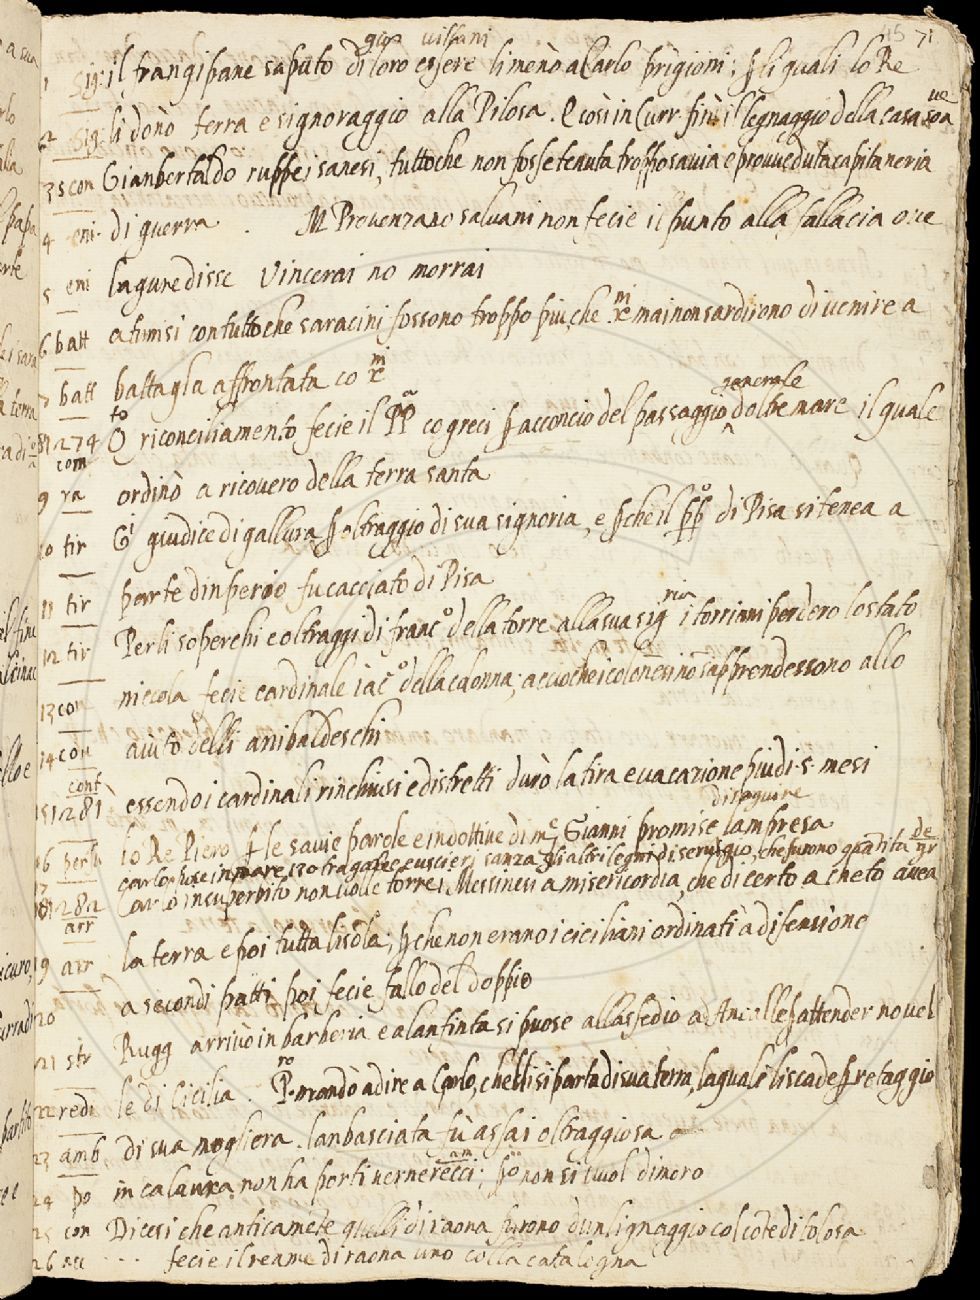 45 71
gio villani
1 Sig: il frangipane saputo di loro essere li menò a Carlo prigioni; p li quali lo Re
2 Sig: li donò terra e signoraggio alla Pilosa. E così in Curr. finì il legnaggio della casa
3 s con Gianbertaldo ruppe i sanesi, tuttoche non fosse tenuta troppo savia e provveduta capitaneria
4 eni. di guerra. M Provenzano salvani non fecie il punto alla fallacia ove
5 eni lagure disse Vincerai no morrai
6 batt a tunisi con tutto che saracini fossono troppo piu, che mai non sardireno di venire a
7 batt battagla affrontata co
generale
8 1274 riconciliamento fecie il PP co greci p acconcio del passaggio d'oltremare il quale
com
9 ra ordinò a ricovero della terra santa
10 tir Gi giudice di gallura p oltraggio di sua signoria, e p che il di Pisa si tenea a
11 tir parte dinperio fu cacciato di Pisa
12 tir Per li soperchi e oltraggi di franc° della torre alla sua sigria i torriani perdero lo stato
13 con niccola fecie cardinale iac° della colonna; accioche i colonesi no sapprendessono allo
14 con aiuto delli anibaldeschi
conf
15 1281 essendo i cardinali rinchiusi e distretti durò la tira e vacazione piu di 5 mesi
di seguire
lo Re Piero p le savie parole e indottive di me Gianni promise lampresa
16 perlu carlo puse in mare 130 tra galee e uscieri sanza gli altri legni di servigio, che furono quantità
17
18 1282 Carlo insuperbito non volle torre i Messinesi a misericordia, che di certo a cheto avea
arr
19 arr la terra e poi tutta lisola; p che non erano i ciciliani ordinati à difensione
20 a secondi patti poi fecie fallo del doppio
21 str Rugg arrivò in barberia e a lanfinta si puose allassedio ad Ancalle p attender novel
22 redi le di Cicilia. P.ro mandò a dire a Carlo, chelli si parta di sua terra, la quale li scade p retaggio
23 amb di sua mogliera. lanbasciata fù assai oltraggiosa
24 po in calavra non ha porti vernerecci; po non si vuol dimoro
25 con Dicesi che anticamete quelli di raona furono dun lignaggio col cote di tolosa
26 acc ... fecie il reame di raona uno colla catalogna